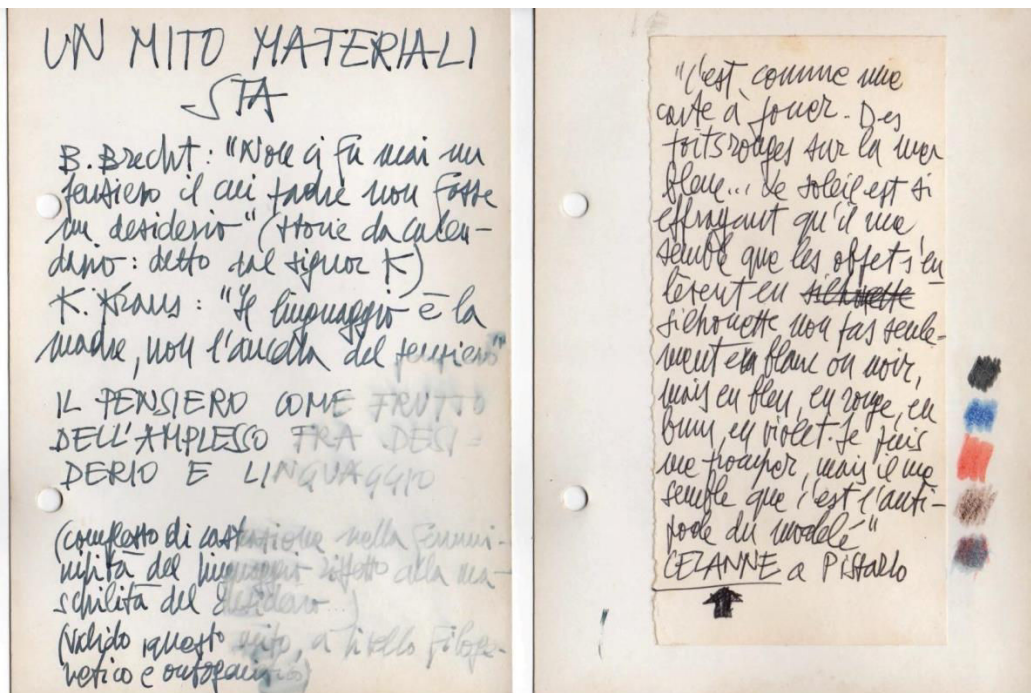 UN MITO MATERIALI
STA
B. Brecht: "Non ci fu mai un
pensiero il cui padre non fosse
un desiderio" (storie da calen-
dario: detto dal signor K)
K. Kraus: "Il linguaggio è la
madre, non l'ancella del pensiero"
IL PENSIERO COME FRUTTO
DELL'AMPLESSO FRA DESI-
DERIO E LINGUAGGIO
(complesso di castrazione nella femmi-
nilità del linguaggio rispetto alla ma-
schilità del desiderio...)
(valido questo mito, a livello filoge-
netico e ontogenetico)
"C'est comme une
carte à jouer. Des
toits rouges sur la mer
bleue... Le soleil est si
effrayant qu'il me
semble que les objets s'en
lèvent en silhouette
silhouette non pas seule-
ment en blanc ou noir,
mais en bleu, en rouge, en
brun, en violet. Je puis
me tromper, mais il me
semble que c'est l'anti-
pode du modelé"
CEZANNE a Pissarro